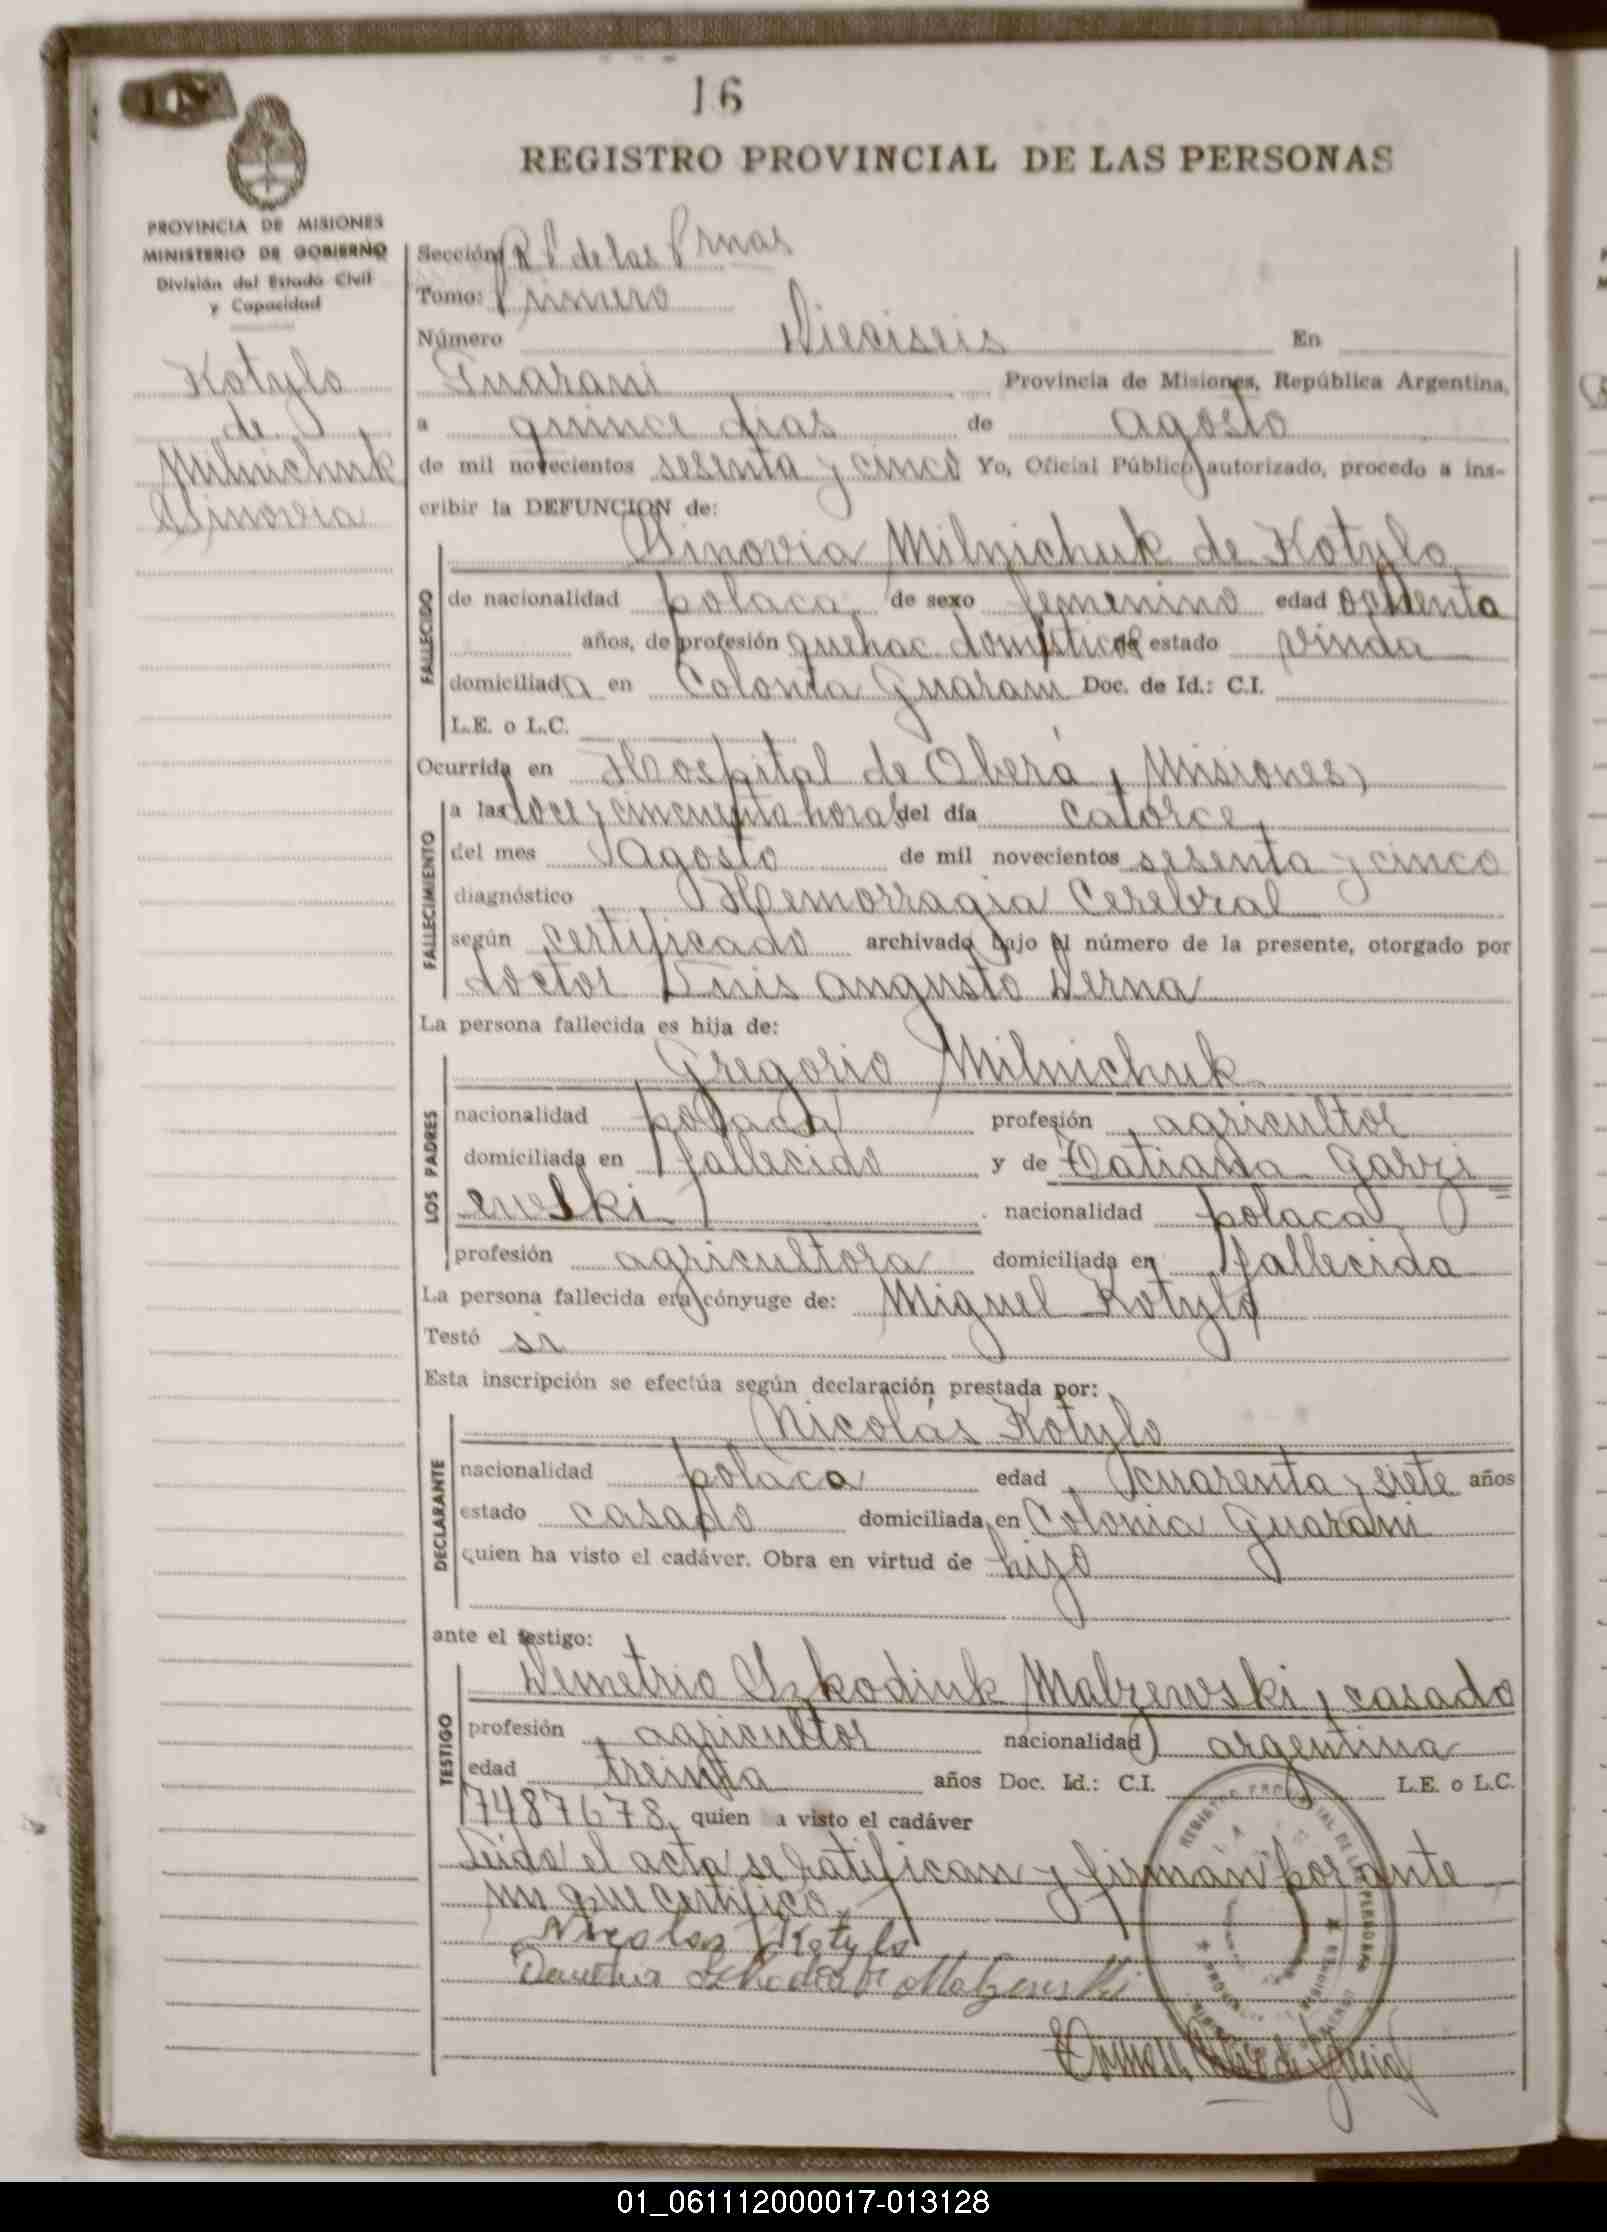 16
REGISTRO PROVINCIAL DE LAS PERSONAS
PROVINCIA DE MISIONES
MINISTERIO DE GOBIERNO
División del Estado Civil
y Capacidad
Kotylo
de
Milnichuk
Sinovia
Sección R P de las Prnas
Tomo: Primero
Número Dieciseis En
Guarani Provincia de Misiones, República Argentina,
a quince dias de agosto
de mil novecientos sesenta y cinco Yo, Oficial Público autorizado, procedo a ins-
cribir la DEFUNCION de:
Sinovia Milnichuk de Kotylo
FALLECIDO
de nacionalidad polaca de sexo femenino edad ochenta
años, de profesión quehac. domésticos de estado viuda
domiciliada en Colonia Guarani Doc. de Id.: C.I.
L.E. o L.C.
Ocurrida en Hospital de Oberá, Misiones,
FALLECIMIENTO
a las doce y cincuenta horas del día catorce,
del mes agosto de mil novecientos sesenta y cinco
diagnóstico Hemorragia Cerebral
según certificado archivado bajo el número de la presente, otorgado por
doctor Luis Augusto Derna
La persona fallecida es hija de:
Gregorio Milnichuk
LOS PADRES
nacionalidad polaca profesión agricultor
domiciliada en fallecido y de Tatiana Garzi=
ewski nacionalidad polaca
profesión agricultora domiciliada en fallecida
La persona fallecida era cónyuge de: Miguel Kotylo
Testó si
Esta inscripción se efectúa según declaración prestada por:
Nicolás Kotylo
DECLARANTE
nacionalidad polaca edad cuarenta y siete años
estado casado domiciliada en Colonia Guarani
quien ha visto el cadáver. Obra en virtud de hijo
ante el testigo:
Demetrio Szkodiuk Malzewski, casado
TESTIGO
profesión agricultor nacionalidad argentina
edad treinta años Doc. Id.: C.I. L.E. o L.C.
7487678, quien ha visto el cadáver
Leida el acta se ratifican y firman por ante
mi que certifico.
Nicolas Kotylo
Demetrio Szkodiuk Malzewski
01_061112000017-013128